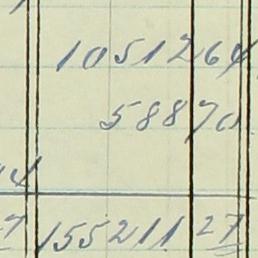 1051264
58870
4
7 155211 27